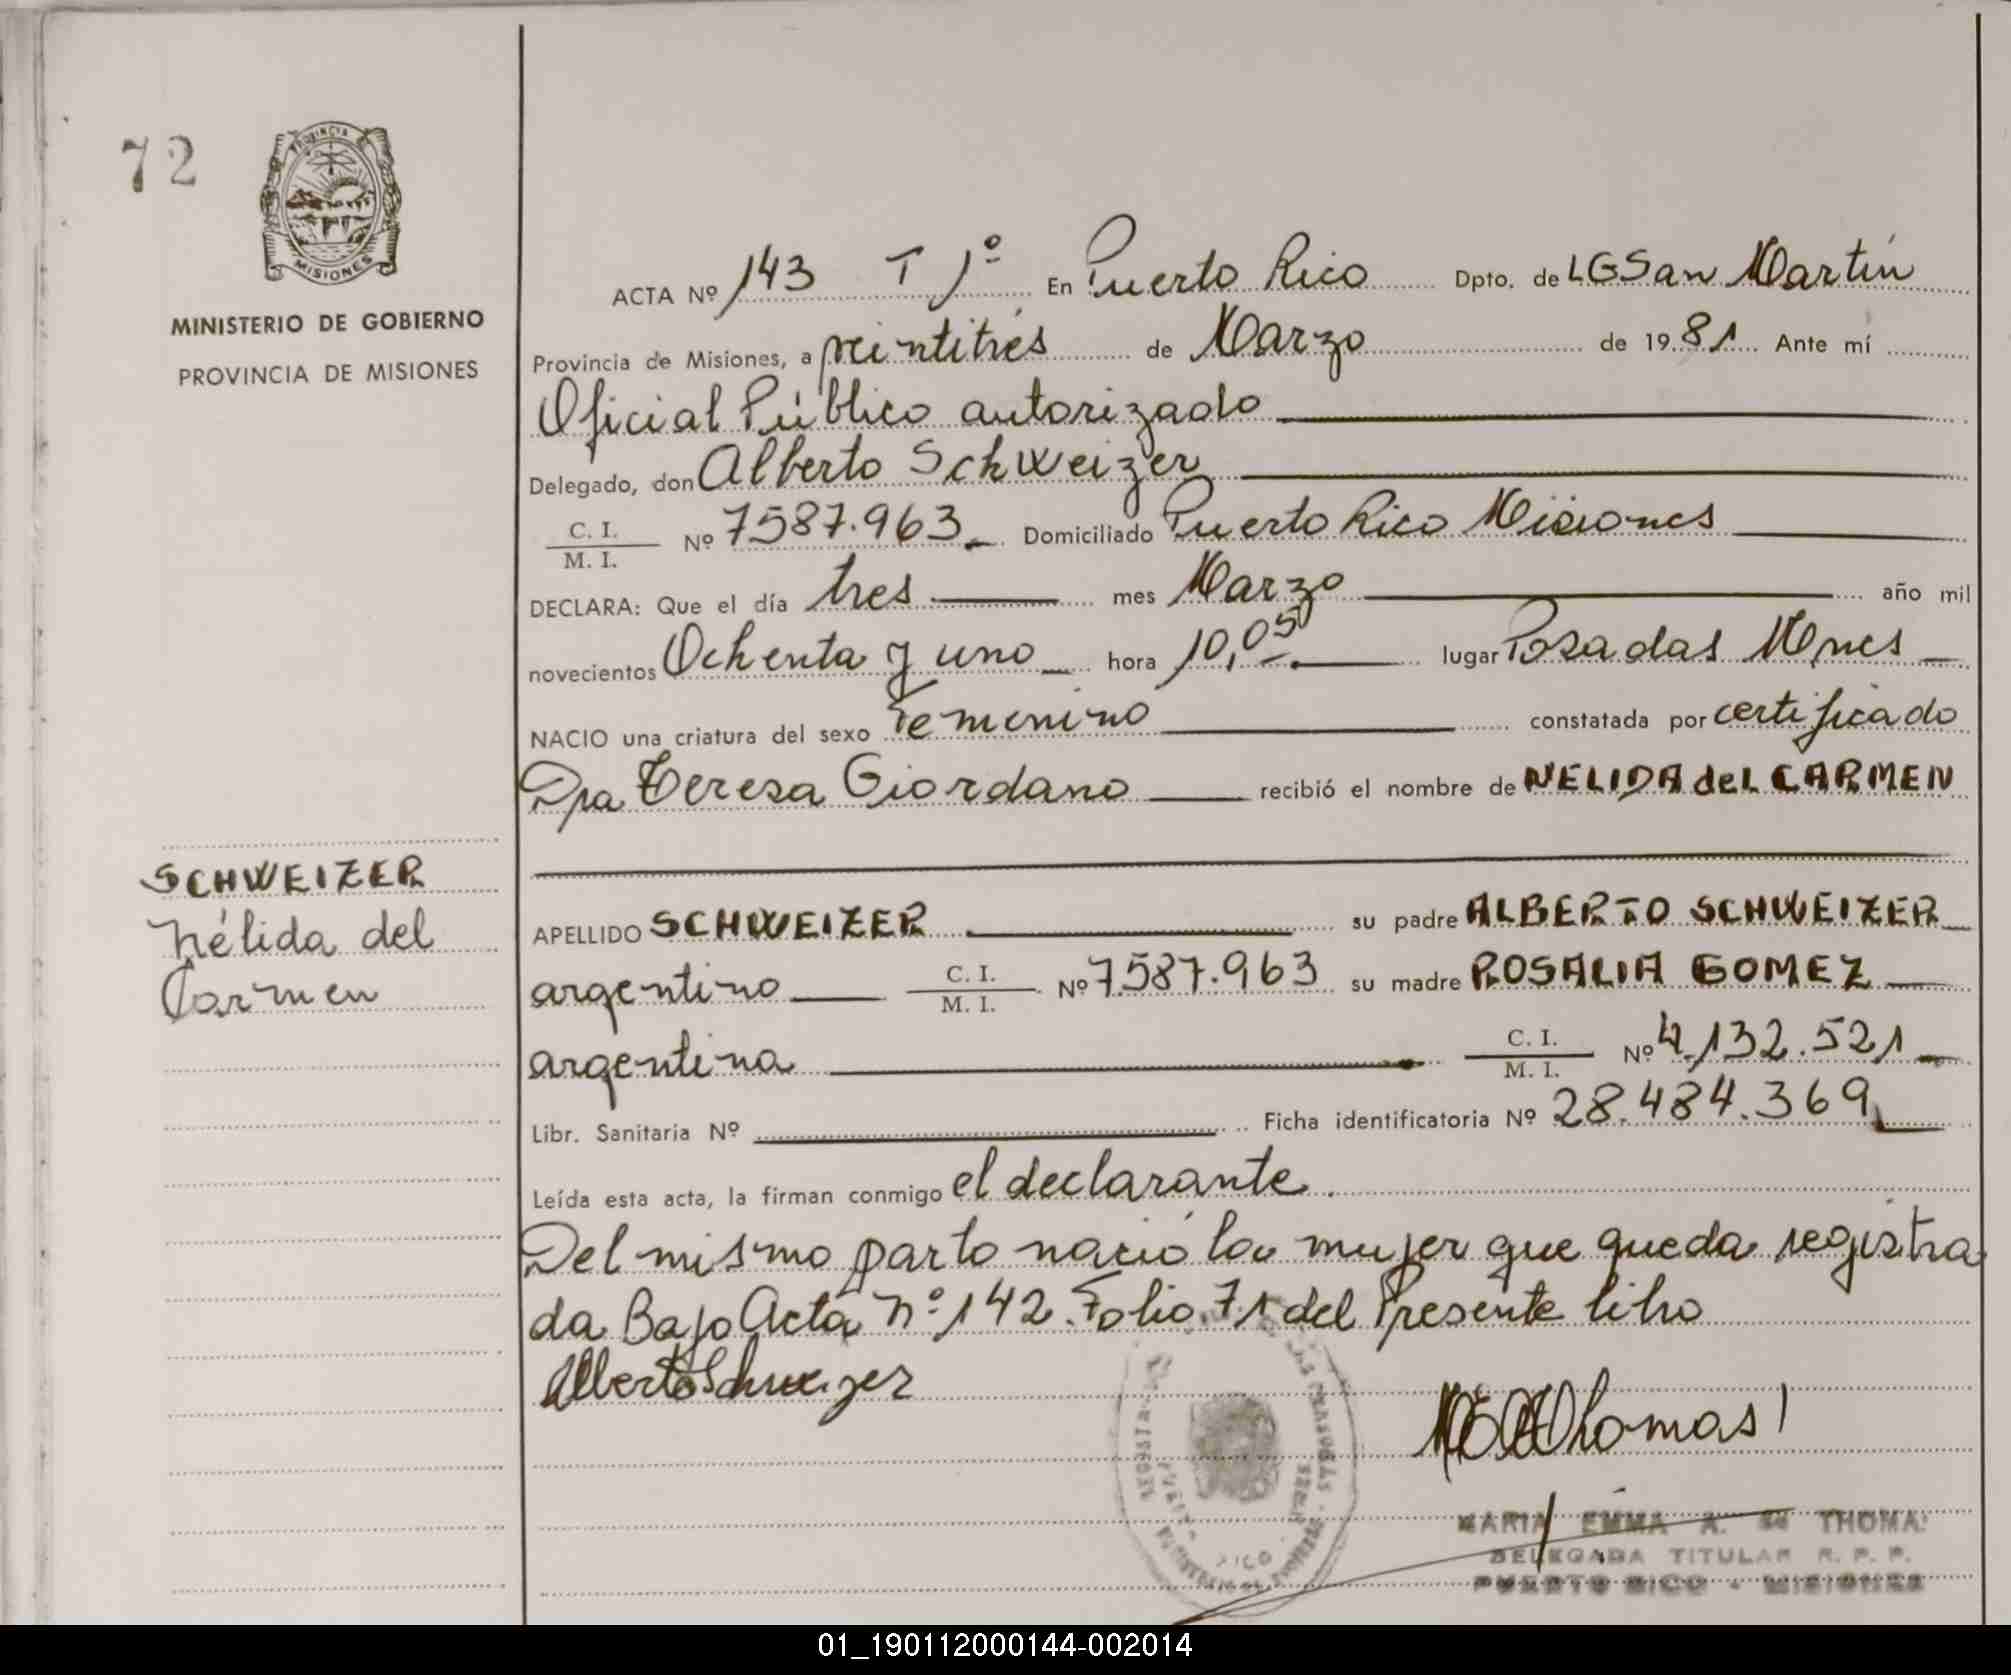 72
PROVINCIA
MISIONES
MINISTERIO DE GOBIERNO
PROVINCIA DE MISIONES
SCHWEIZER
Nélida del
Carmen
ACTA Nº 143 T 1º En Puerto Rico Dpto. de LGSan Martín
Provincia de Misiones, a veintitrés de Marzo de 1981 Ante mí
Oficial Público autorizado
Delegado, don Alberto Schweizer
C. I.
M. I.
Nº 7587.963 Domiciliado Puerto Rico Misiones
DECLARA: Que el día tres mes Marzo año mil
novecientos Ochenta y uno hora 10,05 lugar Posadas Mnes
NACIO una criatura del sexo Femenino constatada por certificado
Dra Teresa Giordano recibió el nombre de NELIDA del CARMEN
APELLIDO SCHWEIZER su padre ALBERTO SCHWEIZER
argentino C. I. M. I. Nº 7587.963 su madre ROSALIA GOMEZ
argentina C. I. M. I. Nº 4.132.521
Libr. Sanitaria Nº Ficha identificatoria Nº 28.484.369
Leída esta acta, la firman conmigo el declarante.
Del mismo parto nació la mujer que queda registra
da Bajo Acta Nº 142. Folio 71 del Presente libro
Alberto Schweizer
Thomas
MARIA EMMA A. de THOMA
DELEGADA TITULAR R. P. P.
PUERTO RICO - MISIONES
01_190112000144-002014